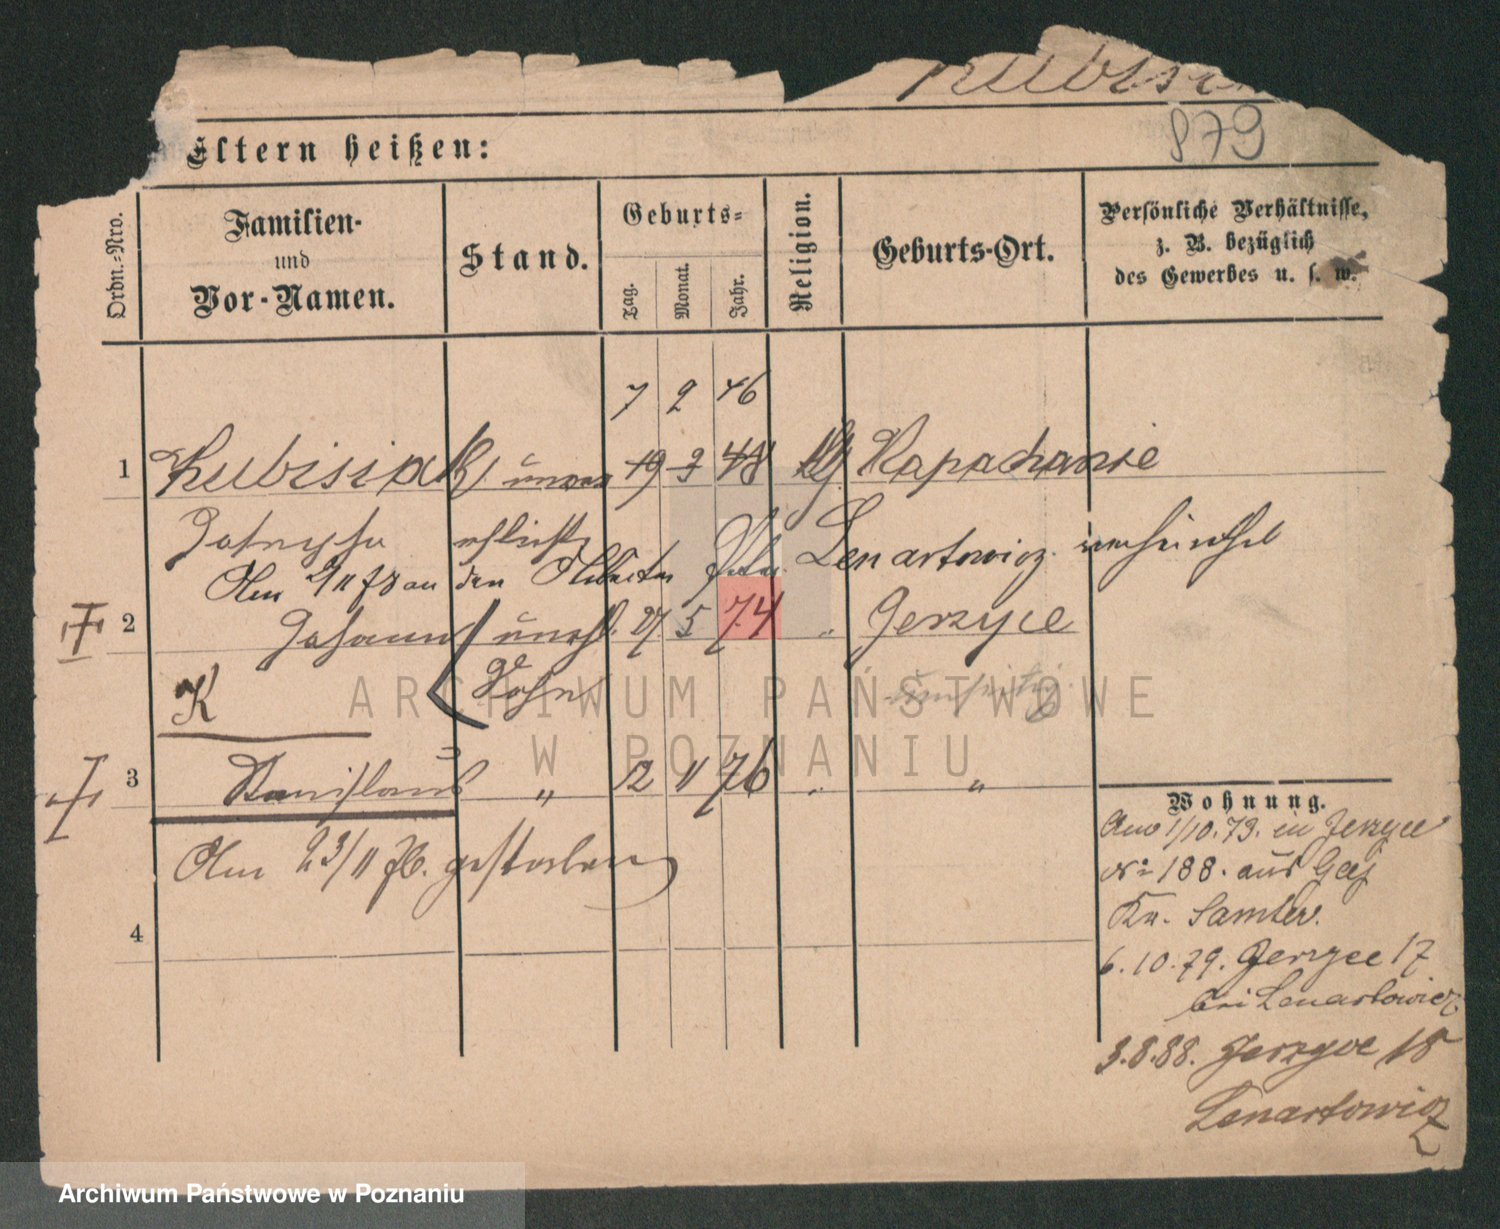 Kubisi
879
Eltern heißen:
Ordn.-Nro.
Familien-
und
Vor-Namen.
Stand.
Geburts-
Tag.
Monat.
Jahr.
Religion.
Geburts-Ort.
Persönliche Verhältnisse,
z. B. bezüglich
des Gewerbes u. s. w.
7 2 46
1 Kubisiak unver 19 3 48 Rapachanie
ehlicht
Am 9/11 78 an den Arbeiter Peter Lenartowicz verheirathet
2 Johann unehl. 27 5 74 " Jerzyce
Sohn
K
ARCHIWUM PAŃSTWOWE
W POZNANIU
3 Stanislaus " 12 11 76 " "
Am 23/11 76. gestorben
4
Wohnung.
Am 1/10. 73. in Jerzyce
No 188. aus Gay
Kr. Samter.
6. 10. 79. Jerzyce 17
bei Lenartowicz
3. 8. 88. Jerzyce 18
Lenartowicz
Archiwum Państwowe w Poznaniu